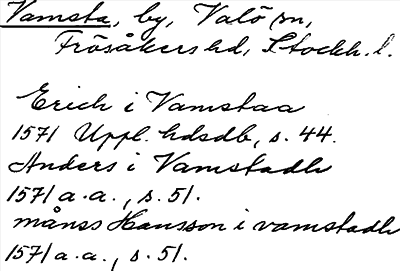 Vamsta, by, Valö sn,
Frösåkers hd, Stockh. l.
Erich i Vamstaa
1571 Uppl. hdsdb, s. 44.
Anders i Vamstadh
1571 a. a., s. 51.
månss Hansson i vamstadh
1571 a. a., s. 51.